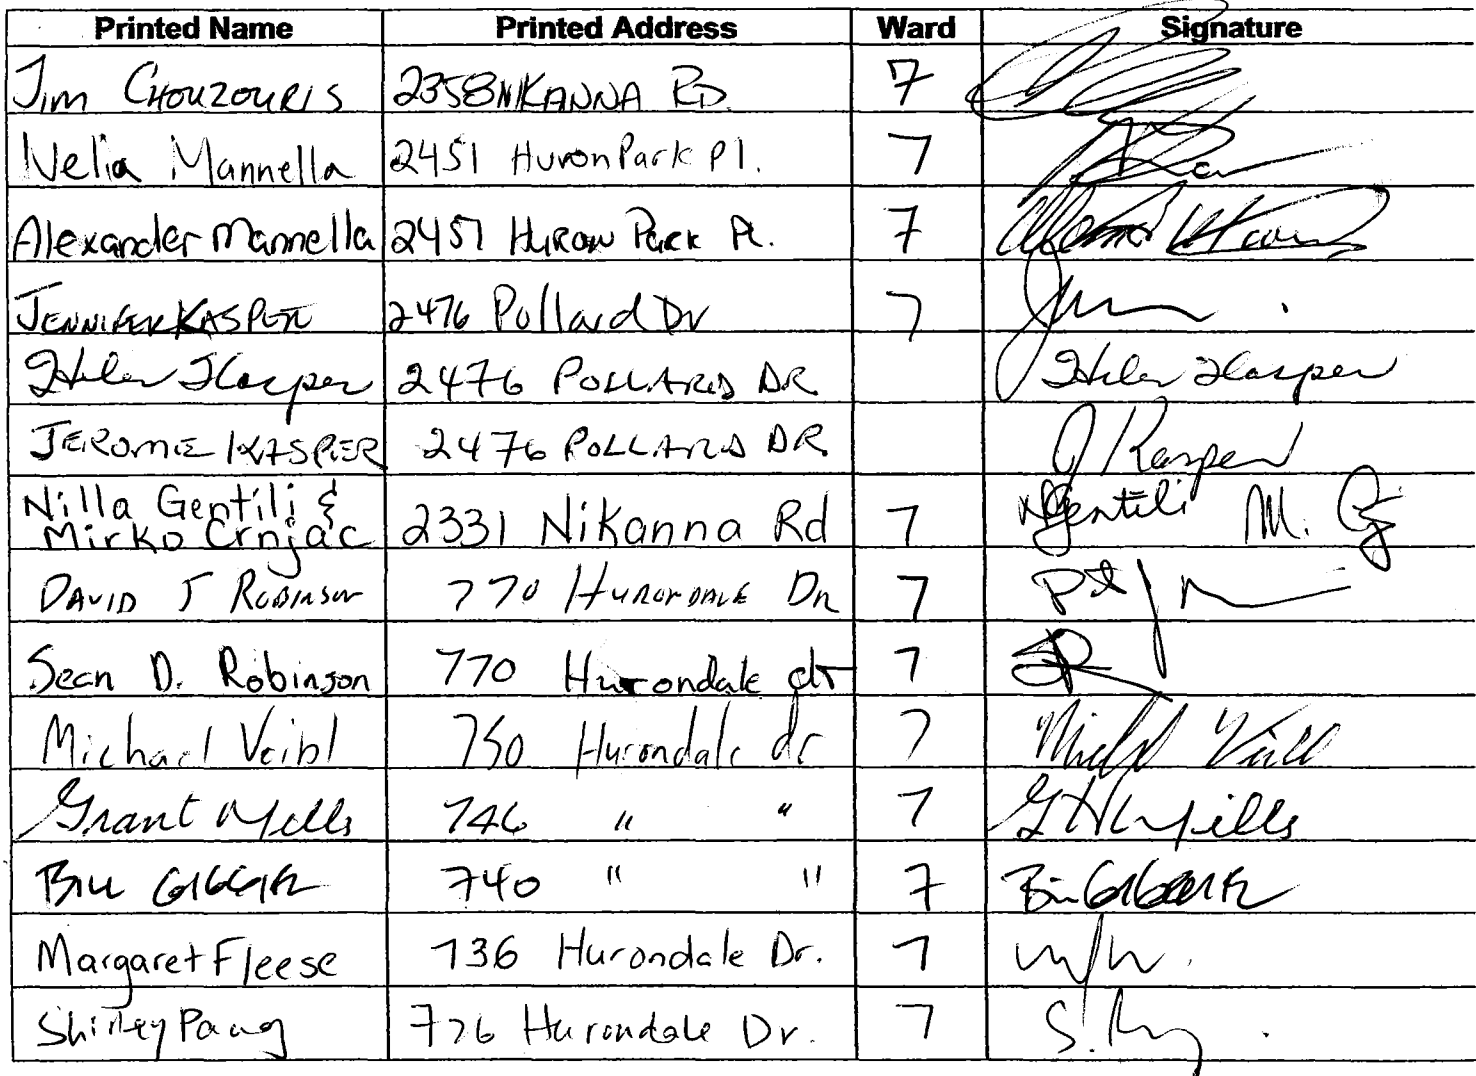 Printed Name Printed Address Ward Signature
Jim CHOUZOURIS 2358 NIKANNA RD. 7
Nelia Mannella 2451 Huron Park Pl. 7
Alexander Mannella 2451 Huron Park Pl. 7
JENNIFER KASPER 2476 Pollard Dr 7
Helen Kasper 2476 POLLARD DR Helen Kasper
JEROME KASPER 2476 POLLARD DR J Kasper
Nilla Gentili &
Mirko Crnjac 2331 Nikanna Rd 7 NGentili M.
DAVID J ROBINSON 770 HURONDALE DR 7
Sean D. Robinson 770 Hurondale dr 7
Michael Veibl 750 Hurondale dr 7
Grant Mills 746 " " 7 Mills
BILL 740 " " 7
Margaret Fleese 736 Hurondale Dr. 7
Shirley Pang 726 Hurondale Dr. 7